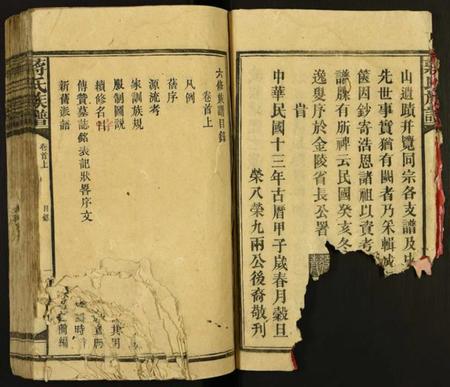 山遺蹟幷覽同宗各支譜及史
先世事實猶有闕者乃采輯
篋因鈔寄浩恩諸祖以資考
譜牒有所裨云民國癸亥冬
逸叟序於金陵省長公署
旹
中華民國十三年古曆甲子歲春月穀旦
榮八榮九兩公後裔敬刋
六修族譜目錄
卷首上
凡例
舊序
源流考
家訓族規
服制圖説
續修名
傳贊墓誌銘表記狀畧序文
新舊派語
蔣氏族譜
卷首上
目錄